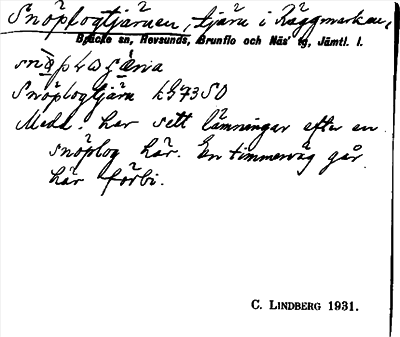 Snöplogtjärnen, tjärn i Räggmarken,
Bräcke sn, Revsunds, Brunflo och Näs' tg, Jämtl. l.
Snöplogtjärn kS 73 SO
Medd. har sett lämningar efter en
snöplog här. En timmerväg går
här förbi.
C. LINDBERG 1931.